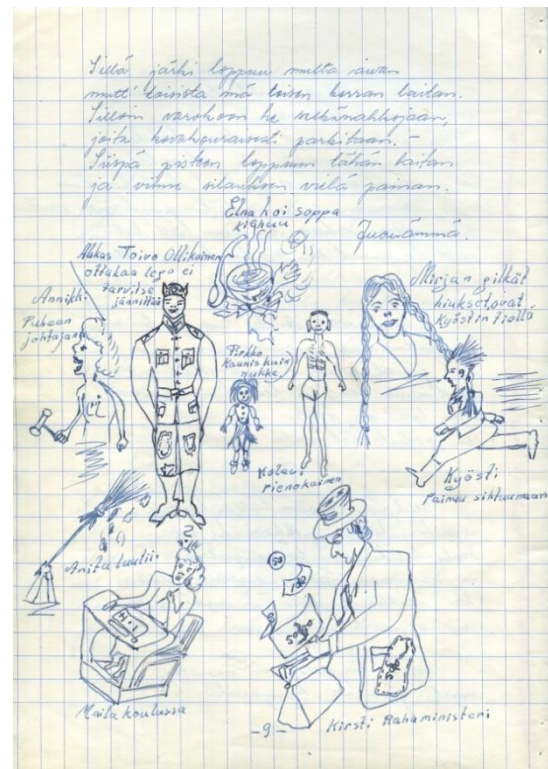 Sillä järki loppuu mutta aivan
mutt' toisista mä toisen kerran laitan.
Silloin varokoon he nekänahkojaan,
joita kovakouraisesti parkitaan.-
Siispä pisteen loppuun tähän laitan
ja viime silauksen vielä painan.
Juonämmä.
Elna hoi soppa
kiehuu
Ahkas Toivo Ollikainen
ottakaa lepo ei
tarvitse
jännittää
Annikki
Puheen
johtajana
Mirjan pitkät
hiukset ovat
Kyöstin tiellä
Pirkko
Kaunis kuin
nukke.
Kalevi
Pienokainen
Kyösti
Paimen sihtuunaan
Anita luutii
Maila koulussa
Kirsti Rahaministeri
-9-